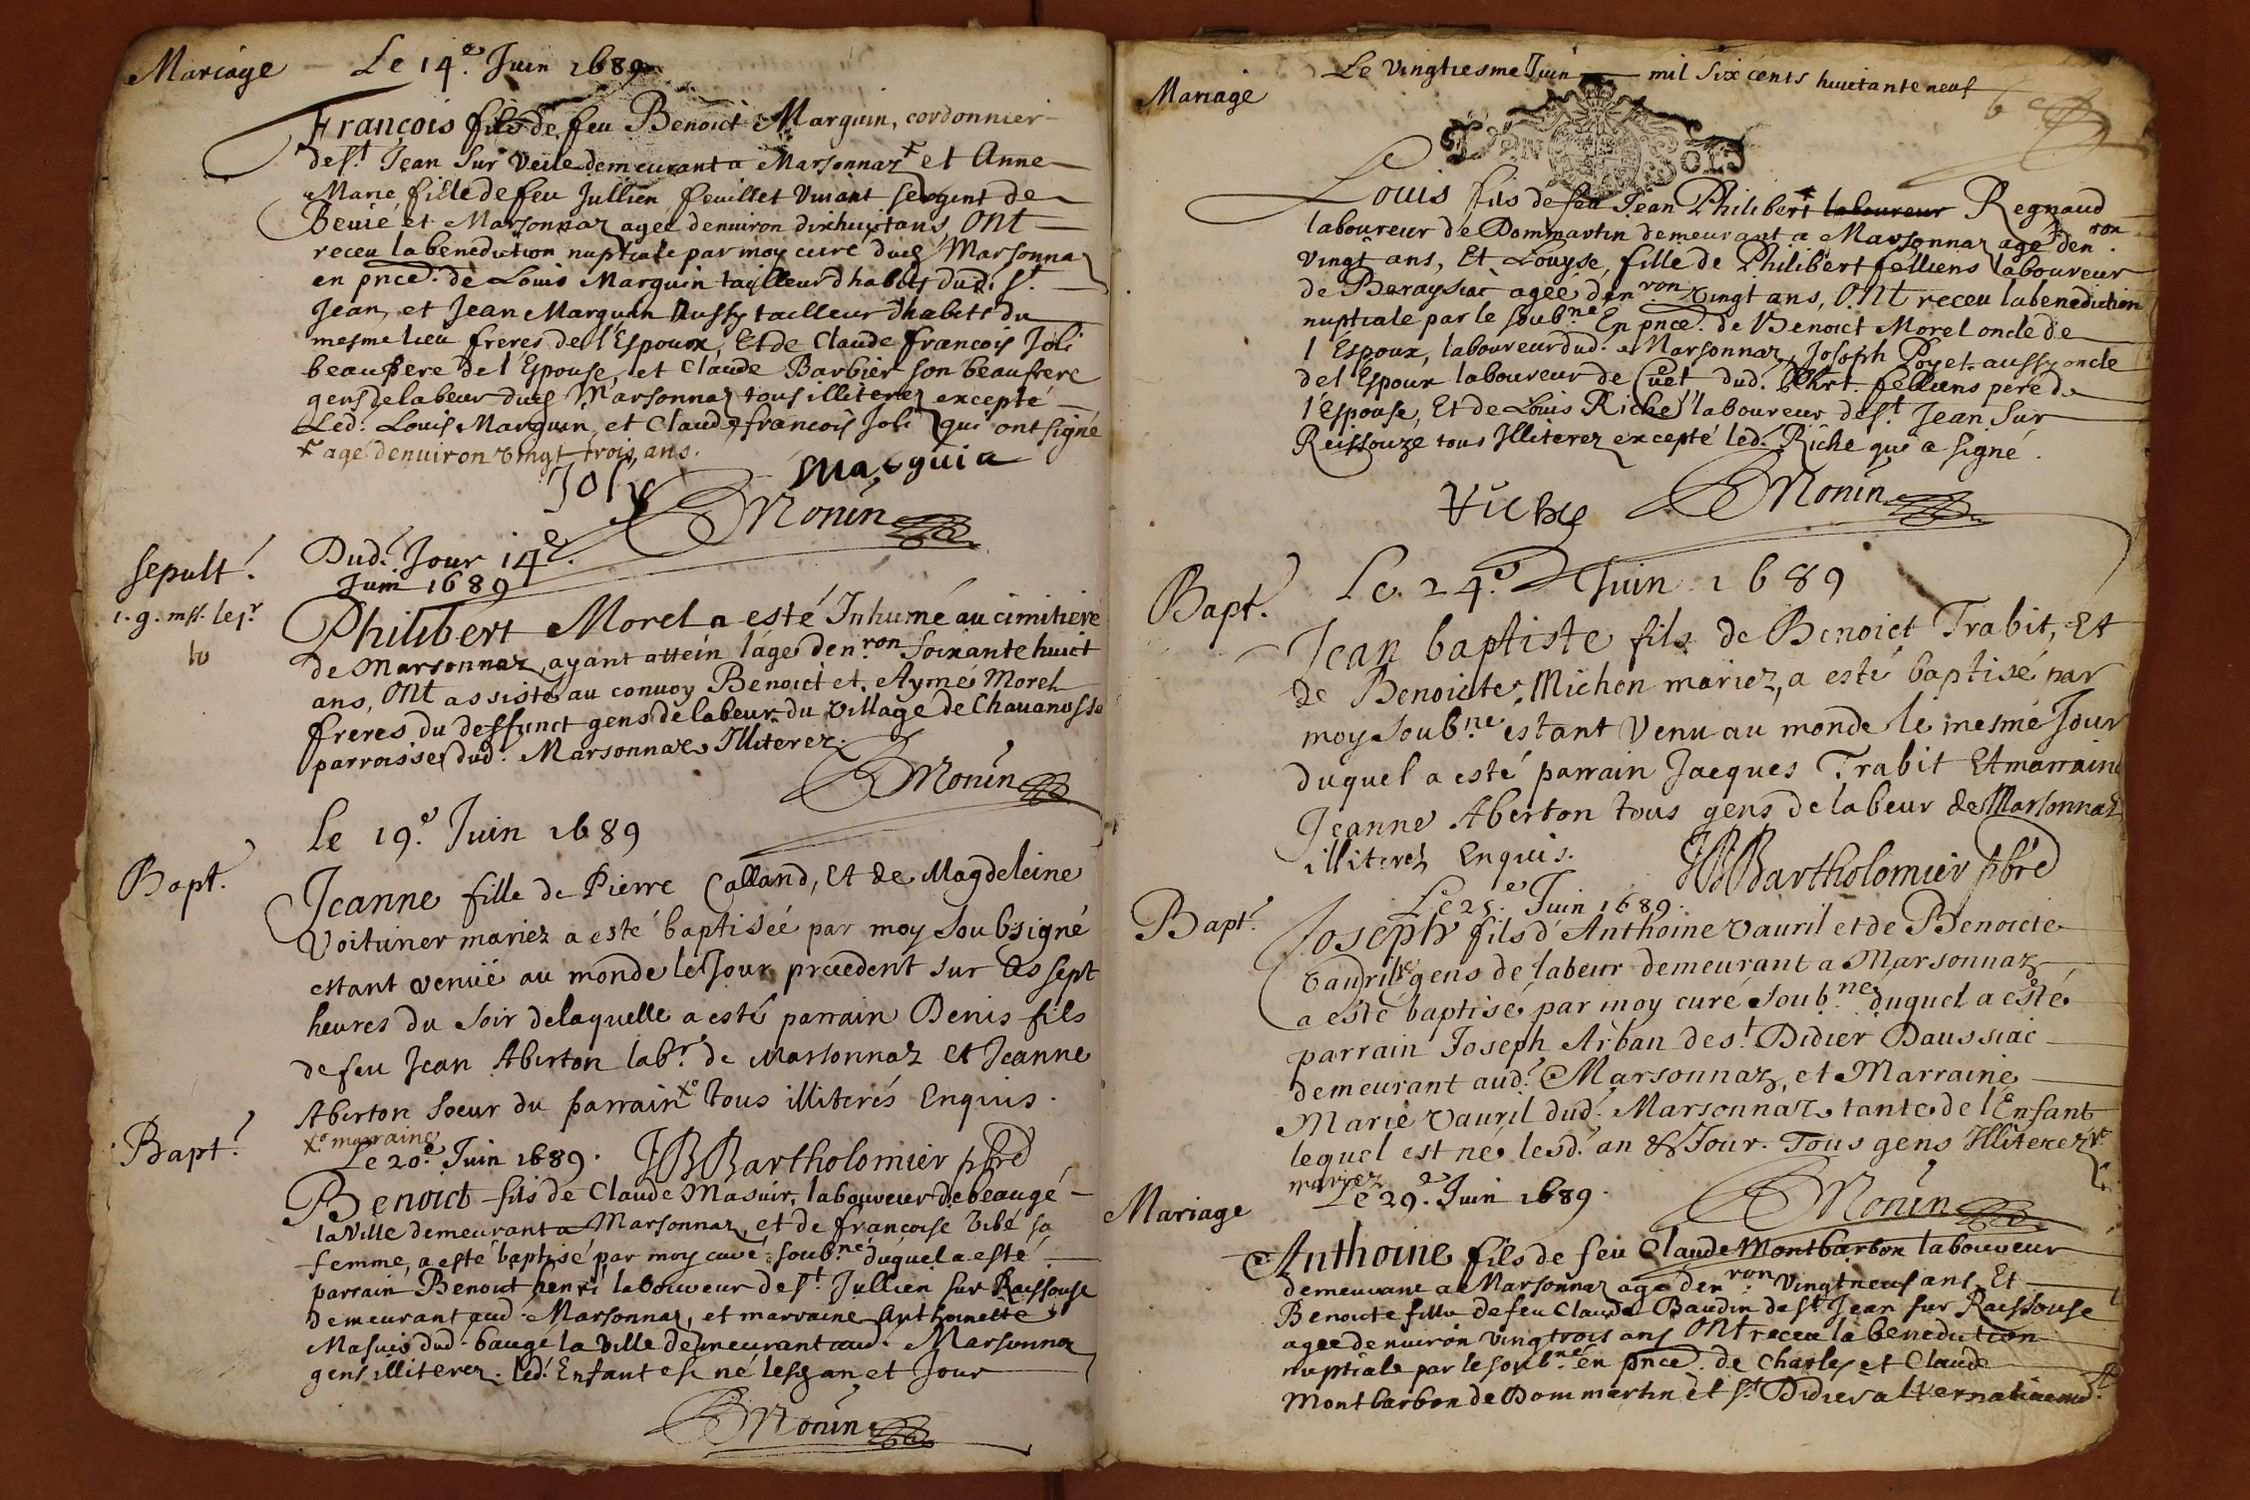 Mariage
Le 14.e Juin 1689
François fils de feu Benoict Marguin, cordonnier
de st Jean Sur Veile demeurant a Marsonnaz x et Anne
Marie, fille de feu Jullien feuillet Vivant sergent de
Beuie et Marsonnaz agee denuiron dixhuict ans, Ont
receu la benediction nuptiale par moy curé dud Marsonnaz
en pnce. de Louis Marguin tailleur dhabits dud. St.
Jean, et Jean Marguin Aussy tailleur dhabits du
mesme lieu freres de l'Espoux, Et de Claude francois Joli
beaupere de l'Espouse, et Claude Barbier son beaufrere
gens de labeur dud Marsonnaz tous illiterez excepté
Led. Louis Marguin, et Claude francois Joli qui ont signé
x agé denuiron vingt trois ans.
Joly
Marguin
Monin
sepult.
Dud. Jour 14e.
Juin 1689
Philibert Morel a esté Inhumé au cimitiere
de Marsonnaz, ayant attein láge den.ron Soixante huict
ans, Ont assisté au convoy Benoict et Aymé Morel
freres du deffunct gens de labeur du Village de Chauanosse
parroisse dud. Marsonnaz Illiterez.
Monin
Le 19.e Juin 1689
Bapt.
Jeanne fille de Pierre Calland, et de Magdeleine
Voiturier mariez a esté baptisée par moy Soubsigné
estant venuë au monde le Jour precedent sur les sept
heures du Soir delaquelle a esté parrain Denis fils
de feu Jean Aberton labr. de Marsonnaz et Jeanne
Aberton Soeur du parrain x tous illiterés Enquis.
x marraine
Bapt.
Le 20.e Juin 1689.
JBBartholomier pbre
Benoict fils de Claude Masuir, laboureur de beaugé
la Ville demeurant a Marsonnaz, et de françoise Bibé sa
femme, a esté baptisé par moy curé soub.ne duquel a esté
parrain Benoict henri laboureur de st. Jullien sur Raissouse
demeurant aud. Marsonnaz, et marraine Anthoinette
Masuir dud. baugé la Ville demeurant aud. Marsonnaz
gens illiterez. led. Enfant est né lesd an et Jour
Monin
Mariage
Le vingtiesme Juin mil six cents huictante neuf
Louis fils de feu Jean Philibert laboureur Regnaud
laboureur de Dommartin demeurant a Marsonnaz agé den.ron
vingt ans, Et Louyse, fille de Philibert felliens laboureur
de Beraysiac agée den.ron vingt ans, Ont receu la benediction
nuptiale par le soub.ne En pnce. de Benoict Morel oncle de
l'Espoux, laboureur dud. Marsonnaz, Joseph Poyet aussy oncle
de l'Espoux laboureur de Cuet, dud. felliens pere de
l'Espouse, Et de Louis Riche laboureur de st. Jean Sur
Reissouze tous Illiterez excepté led. Riche qui a signé.
Monin
Bapt.
Le 24.e Juin 1689
Jean baptiste fils de Benoict Trabit, Et
de Benoicte Michon mariez, a esté baptisé par
moy Soub.ne estant venu au monde le mesme Jour
duquel a esté parrain Jacques Trabit Et marraine
Jeanne Aberton tous gens de labeur de Marsonnaz
illiterez Enquis.
JBBartholomier pbre
Bapt.
Le 25.e Juin 1689.
Joseph fils d'Anthoine Vauril et de Benoicte
gens de labeur demeurant a Marsonnaz
a esté baptisé par moy curé Soub.ne duquel a esté
parrain Joseph Arban de st. Didier Daussiac
demeurant aud. Marsonnaz, et Marraine
Marie Vauril dud. Marsonnaz tante de l'Enfant
lequel est né lesd. an & Jour. Tous gens Illiterez
mariez
Monin
Mariage
Le 29.e Juin 1689.
Anthoine fils de feu Claude Montbarbon laboureur
demeurant a Marsonnaz agé den.ron vingt neuf ans, Et
Benoicte fille de feu Claude Baudin de st. Jean sur Raissouse
agee denuiron vingtrois ans Ont receu la benediction
nuptiale par le soub.ne en pnce. de Charles et Claude
Montbarbon de Dommartin et st. Didier alternativement